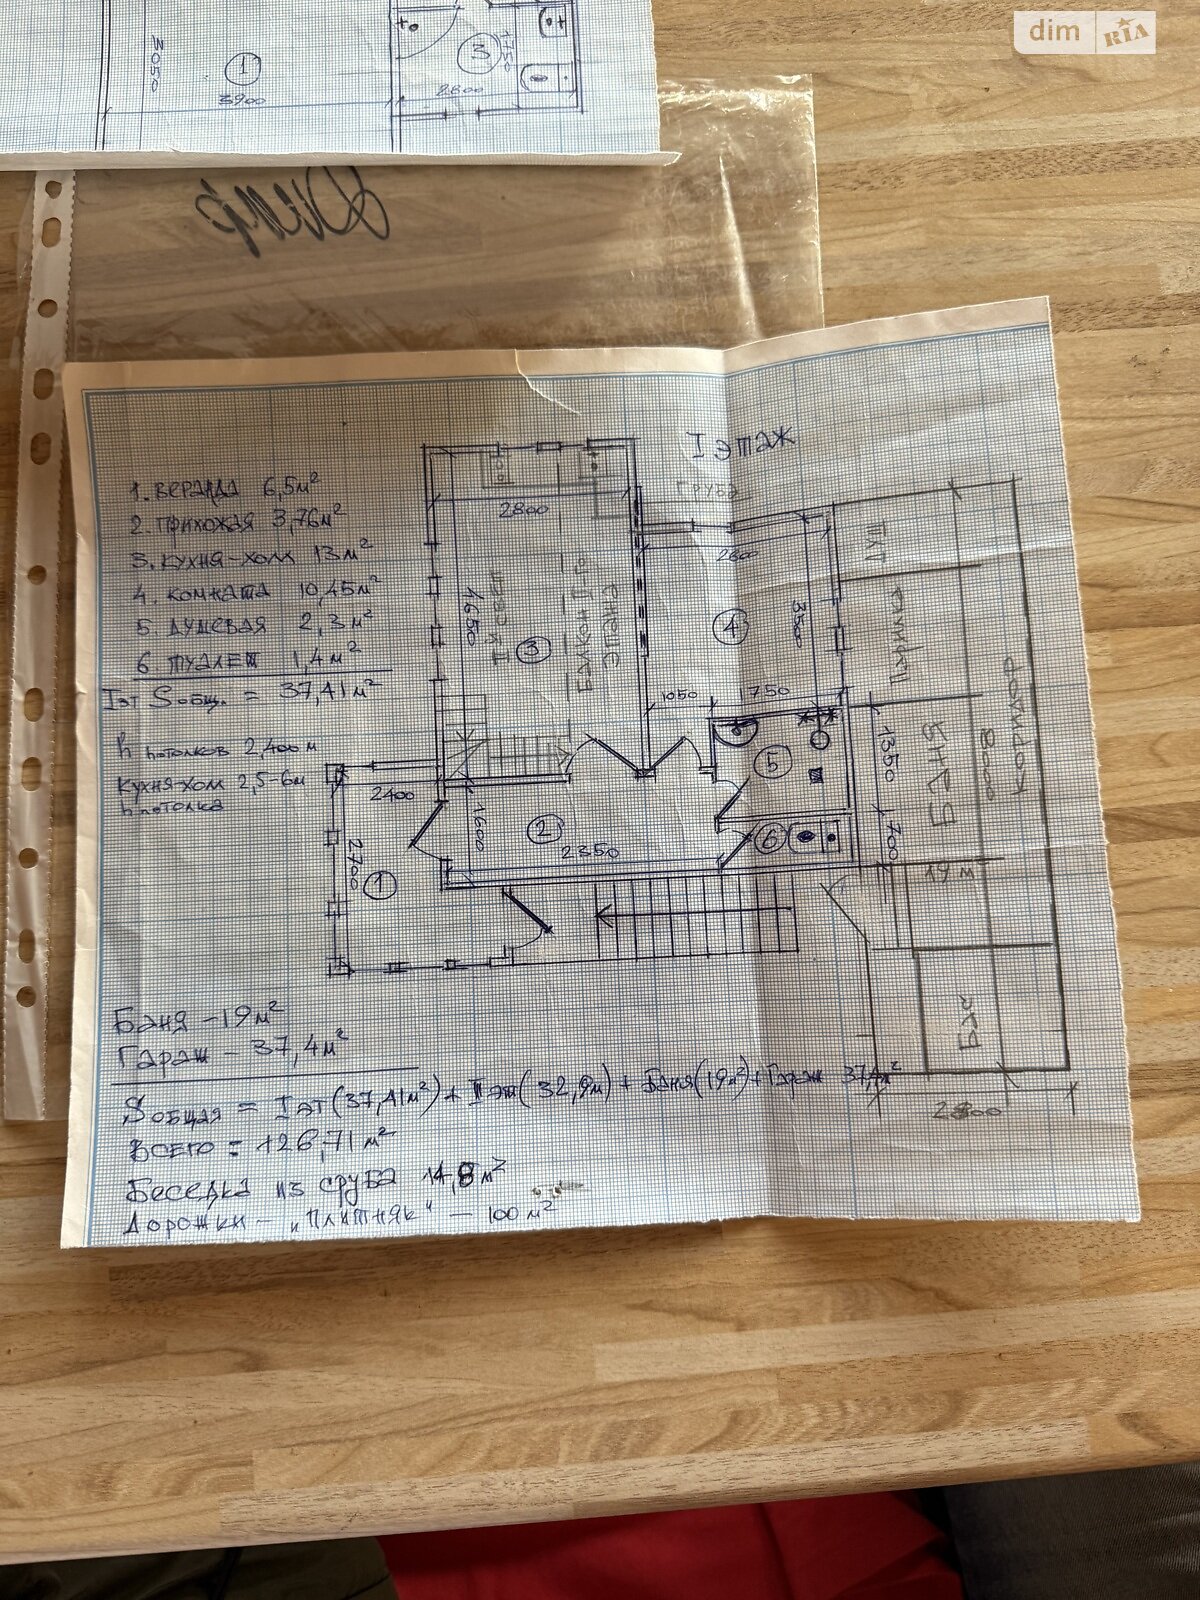 dim RIA
3050
1
3900
3
1750
2800
I ЭТАЖ
1. ВЕРАНДА 6,5м²
2. ПРИХОЖАЯ 3,76м²
3. КУХНЯ-ХОЛЛ 13м²
4. КОМНАТА 10,45м²
5. ДУШЕВАЯ 2,3м²
6. ТУАЛЕТ 1,4м²
Iэт Sобщ. = 37,41м²
h потолков 2,400м
Кухня-холл 2,5-6м
h потолка
2800
2600
4650
3
4
1050
1750
5
1350
700
6
2
2350
1600
2400
2700
1
БАНЯ
19м
КОРИДОР
2800
Баня - 19м²
Гараж - 37,4м²
Sобщая = Iэт(37,41м²) + IIэт(32,9м) + Баня(19м²) + Гараж 37,4м²
ВСЕГО = 126,71м²
Беседка из сруба 14,8м²
Дорожки - "Плитняк" - 100м²